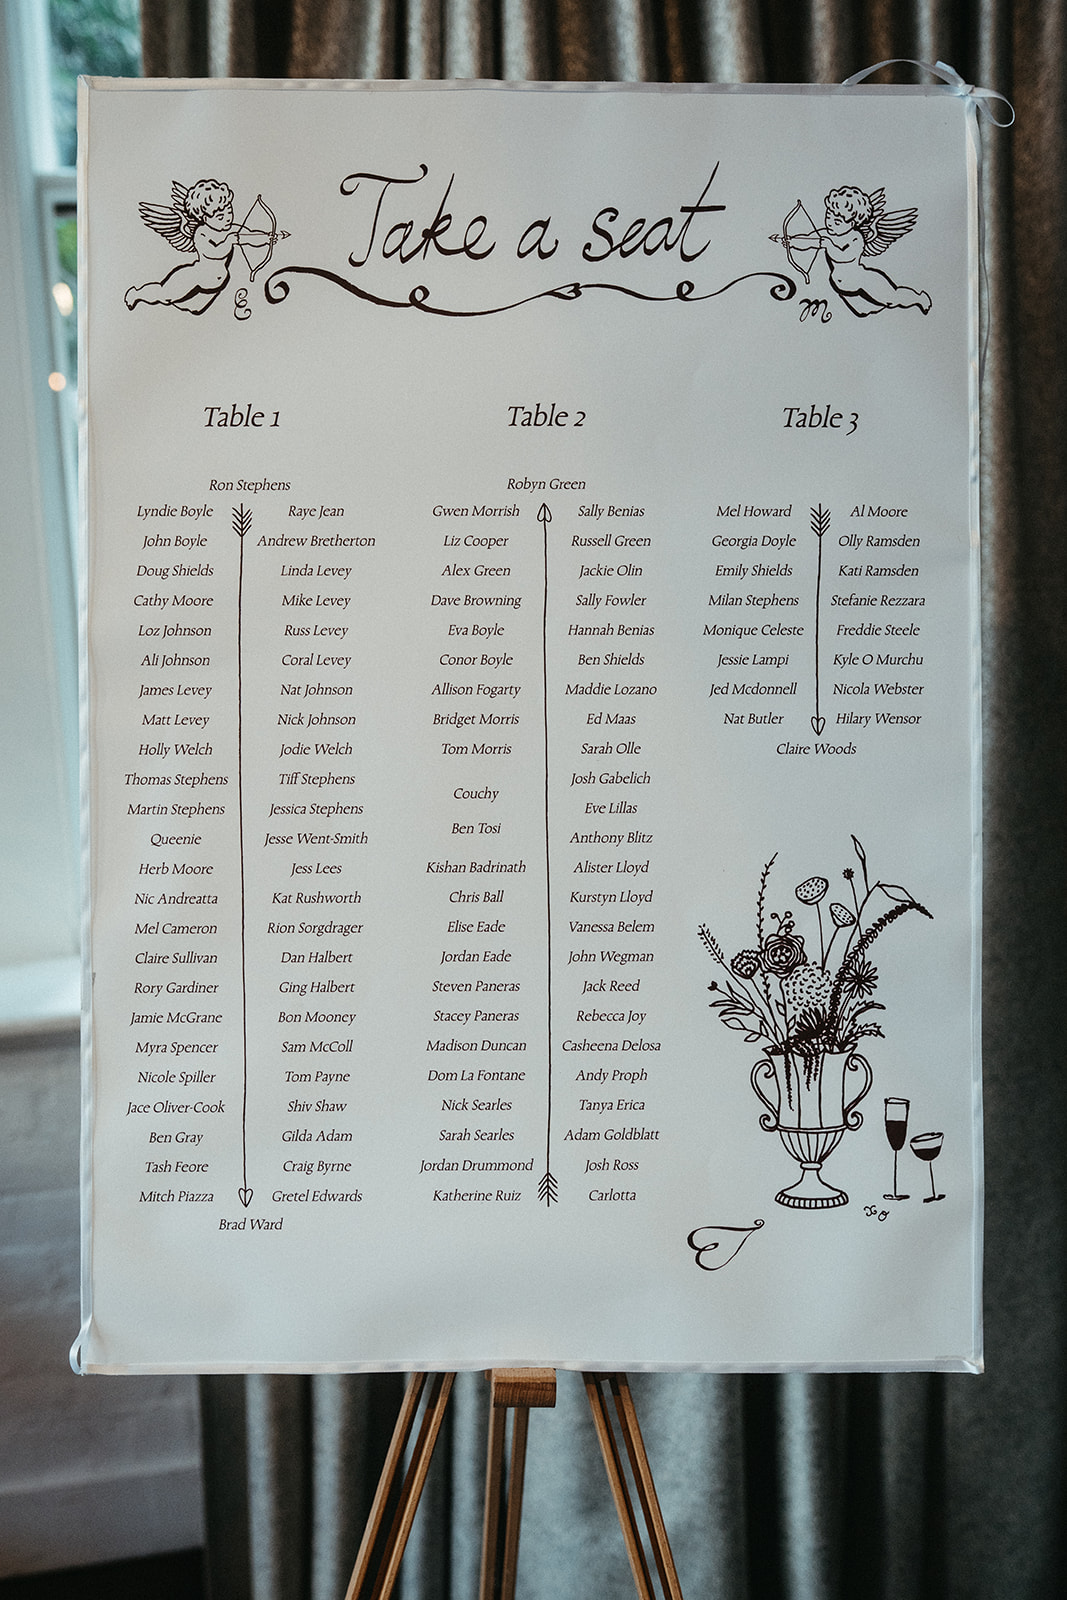 Take a seat
E
M
Table 1
Ron Stephens
Lyndie Boyle
John Boyle
Doug Shields
Cathy Moore
Loz Johnson
Ali Johnson
James Levey
Matt Levey
Holly Welch
Thomas Stephens
Martin Stephens
Queenie
Herb Moore
Nic Andreatta
Mel Cameron
Claire Sullivan
Rory Gardiner
Jamie McGrane
Myra Spencer
Nicole Spiller
Jace Oliver-Cook
Ben Gray
Tash Feore
Mitch Piazza
Raye Jean
Andrew Bretherton
Linda Levey
Mike Levey
Russ Levey
Coral Levey
Nat Johnson
Nick Johnson
Jodie Welch
Tiff Stephens
Jessica Stephens
Jesse Went-Smith
Jess Lees
Kat Rushworth
Rion Sorgdrager
Dan Halbert
Ging Halbert
Bon Mooney
Sam McColl
Tom Payne
Shiv Shaw
Gilda Adam
Craig Byrne
Gretel Edwards
Brad Ward
Table 2
Robyn Green
Gwen Morrish
Liz Cooper
Alex Green
Dave Browning
Eva Boyle
Conor Boyle
Allison Fogarty
Bridget Morris
Tom Morris
Couchy
Ben Tosi
Kishan Badrinath
Chris Ball
Elise Eade
Jordan Eade
Steven Paneras
Stacey Paneras
Madison Duncan
Dom La Fontane
Nick Searles
Sarah Searles
Jordan Drummond
Katherine Ruiz
Sally Benias
Russell Green
Jackie Olin
Sally Fowler
Hannah Benias
Ben Shields
Maddie Lozano
Ed Maas
Sarah Olle
Josh Gabelich
Eve Lillas
Anthony Blitz
Alister Lloyd
Kurstyn Lloyd
Vanessa Belem
John Wegman
Jack Reed
Rebecca Joy
Casheena Delosa
Andy Proph
Tanya Erica
Adam Goldblatt
Josh Ross
Carlotta
Table 3
Mel Howard
Georgia Doyle
Emily Shields
Milan Stephens
Monique Celeste
Jessie Lampi
Jed Mcdonnell
Nat Butler
Al Moore
Olly Ramsden
Kati Ramsden
Stefanie Rezzara
Freddie Steele
Kyle O Murchu
Nicola Webster
Hilary Wensor
Claire Woods
xo